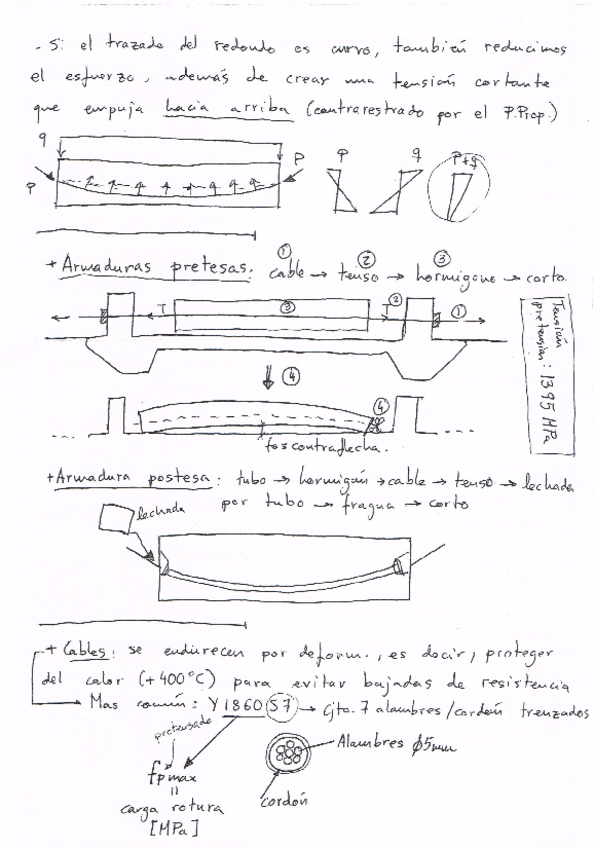 - Si el trazado del redondo es curvo, también reducimos
el esfuerzo, además de crear una tensión cortante
que empuja hacia arriba (contrarestrado por el P.Prop.)
q
P
P
P q P+q
+ Armaduras pretesas: cable → tenso → hormigono → corto.
① ② ③
T ③ T ② ①
Tensión
pretension: 1395 MPa
④
④
fos contraflecha.
+ Armadura postesa: tubo → hormigón → cable → tenso → lechada
por tubo → fragua → corto
lechada
+ Cables: se endurecen por deform., es decir, proteger
del calor (+400°C) para evitar bajadas de resistencia
Mas común: Y 1860 S7 → Cjto. 7 alambres/cordón trenzados
pretensado
fpmax
=
carga rotura
[MPa]
Alambres ϕ5mm
Cordón